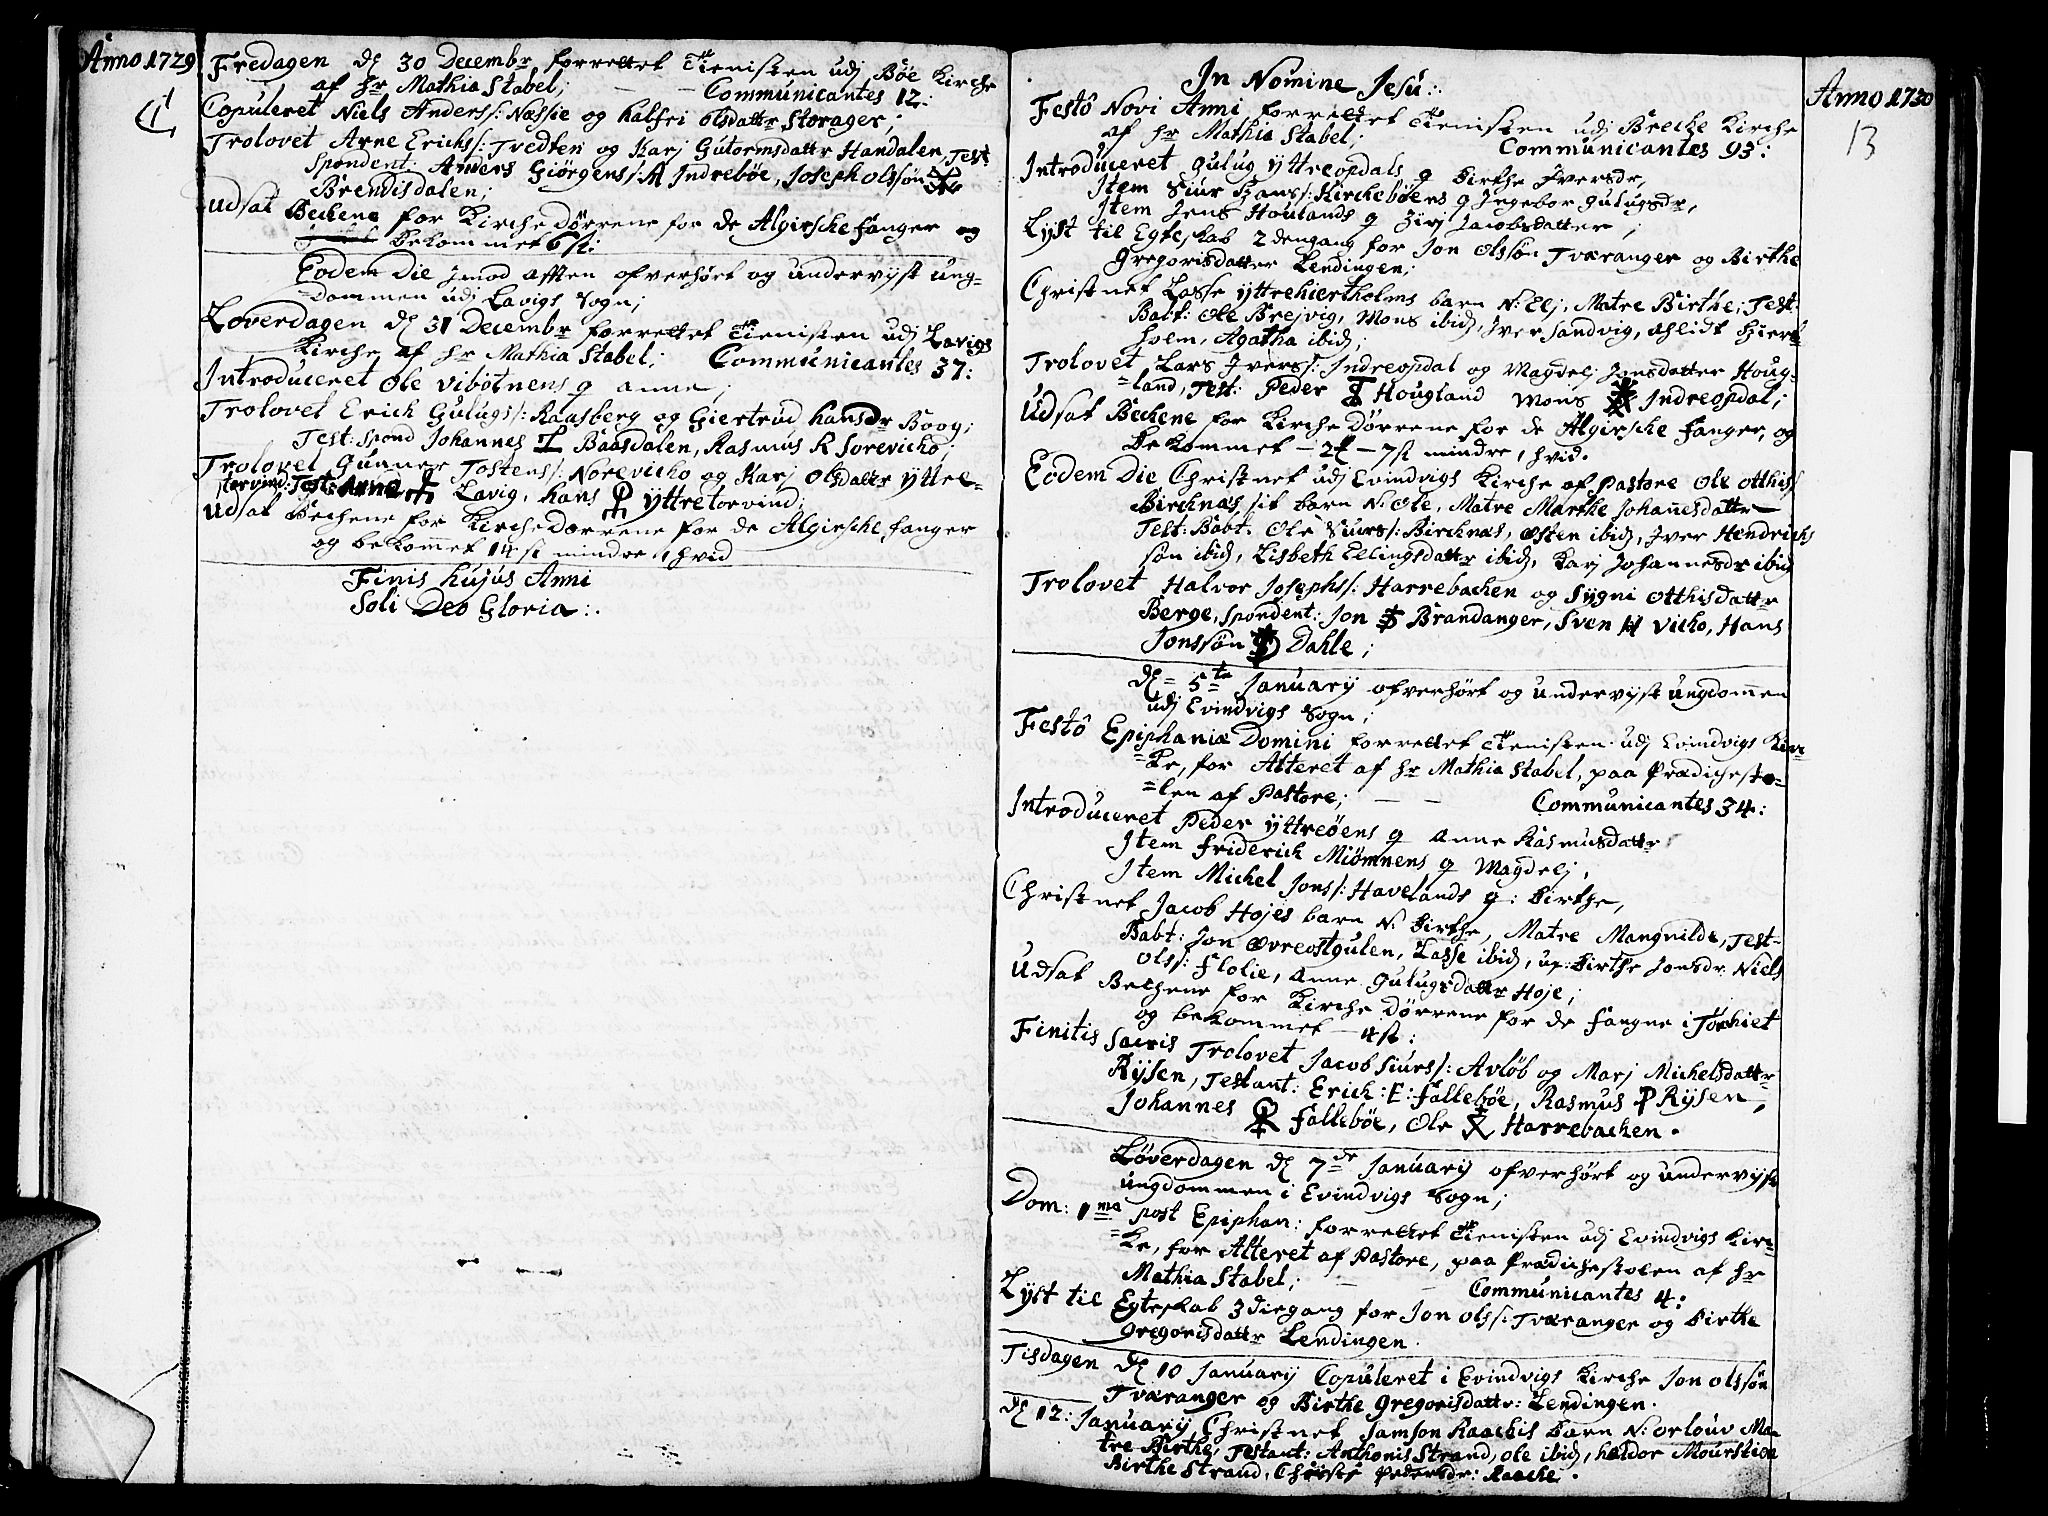 Anno 1729
Fredagen d. 30 Decembr forrettet Tienisten udj Böe Kirche
af Hr Mathia Stabel; Communicantes 12:
Copuleret Niels Anderss: Næssie og halfri Olsdattr Storager;
Trolovet Arne Erichs: Tvedten og Karj Gutormsdattr Handalen, Test
Spondent: Anders Giörgens: A Indreböe, Joseph Olssön
Brendisdalen;
Udsat Bechene for Kirche Dörrene for de Algirsche fanger og
bekommet 6 st:
Eodem Die jmod afften ofverhört og undervijst ung-
=dommen udj Lavigs Sogn;
Löverdagen d. 31 Decembr forrettet Tienisten udj Lavigs
Kirche af Hr Mathia Stabel: Communicantes 37:
Introduceret Ole Vibötnens q Anne;
Trolovet Erich Gulugs: Raasberg og Giertrud hansdr Boog;
Test: Spond Johannes Baasdalen, Rasmus R Sorevicho;
Trolovet Gunner Tostens: Norevicho og Karj Olsdattr Yttre-
torvind: Test: Arne Lavig, hans Yttretorvind;
Udsat Bechene for Kirche Dörrene for de Algirsche fanger
og bekom̅et 14 st mindre 1 hvid
Finis hujus Anni
Soli Deo Gloria:.
Anno 1730
13
In Nomine Jesu:.
Festo Novi Anni forrettet Tienisten udj Breche Kirche
af Hr Mathia Stabel; Communicantes 93:
Introduceret Gulug Yttreopdals q Birthe Iversdr,
Item Siur Hans: Kircheböens q Ingebor Gulugsdr,
Item Jens Houlands q Zirj Jacobsdatter;
Lyst til Egteskab 2 dengang for Jon Olssön Tværanger og Birthe
Gregorisdatter Lendingen;
Christnet Lasse Yttrehiertholms barn N: Elj, Matre Birthe; Test:
Babt: Ole Brejvig, Mons ibid, Iver Sandvig, Ahlidt Hiert
holm, Agatha ibid;
Trolovet Lars Ivers: Indreopdal og Magdelj Jensdatter Houg-
=land, Test: Peder Hougland Mons Indreopdal;
Udsat Bechene for Kirche Dörrene for de Algirsche fanger, og
Bekommet - 2 - 7 st mindre 1 hvid.
Eodem Die Christnet udj Evindvigs Kirche af Pastore Ole Otthis
Birchnæs sit barn N: Ole, Matre Marthe Johanesdattr
Test: Babt. Ole Siurs: Birchnæs, Östen ibid, Iver Hendrichs
sön ibid, Lisbeth Ellingsdattr ibid, Karj Johannesdr ibid
Trolovet Halvor Josephs: Harrebachen og Sygni Otthisdattr
Berge, Spondent: Jon Brandanger, Sven H Vicho, Hans
Jonssön Dahle;
d. 5te Januarij ofverhört og undervijst ungdom̅en
udj Evindvigs Sogn;
Festo Epiphaniæ Domini forrettet Tienisten udj Evindvigs Kir-
=ke, for Alteret af Hr Mathia Stabel, paa Prædichesto-
=len af Pastore; Communicantes 34:
Introduceret Peder Yttreöens q Anne Rasmusdattr
Item Friderich Miömnens q Magdelj,
Item Michel Jons: Havelands q: Birthe,
Christnet Jacob Hojes barn N: Birthe, Matre Mangnilde, Test-
Babt: Jon Övreostgulen, Lasse ibid, ux: Birthe Jonsdr Niels
Ols: Flolie, Anne Gulugsdattr Hoje;
Udsat Bechene for Kirche Dörrene for de fangne i Törhiet
og bekommet 4 st:
Finitis Sacris Trolovet Jacob Siurs: Avlöb og Marj Michelsdattr
Rijsen, Testant: Erich: E: Falleböe, Rasmus P Rijsen,
Johannes Falleböe, Ole Harrebachen.
Löverdagen d. 7de Januarij ofverhört og undervijst
ungdommen i Evindvigs Sogn;
Dom: 1ma post Epiphan: forrettet Tienisten udj Evindvigs Kir-
=ke, for Alteret af Pastore, paa Prædichestolen af Hr
Mathia Stabel; Communicantes 4:
Lyst til Egteskab 3 diegang for Jon Ols: Tværanger og Birthe
Gregorisdattr Lendingen.
Tisdagen d. 10 Januarij Copuleret i Evindvigs Kirche Jon Olssön
Tværanger og Birthe Gregorisdattr: Lendingen.
d. 12: Januarij Christnet Samson Raachis Barn N: Orlouv Ma-
tre Birthe, Testant: Anthonis Strand, Ole ibid, haldor Mourstien
Birthe Strand, Christi Pedersdr: Raache.